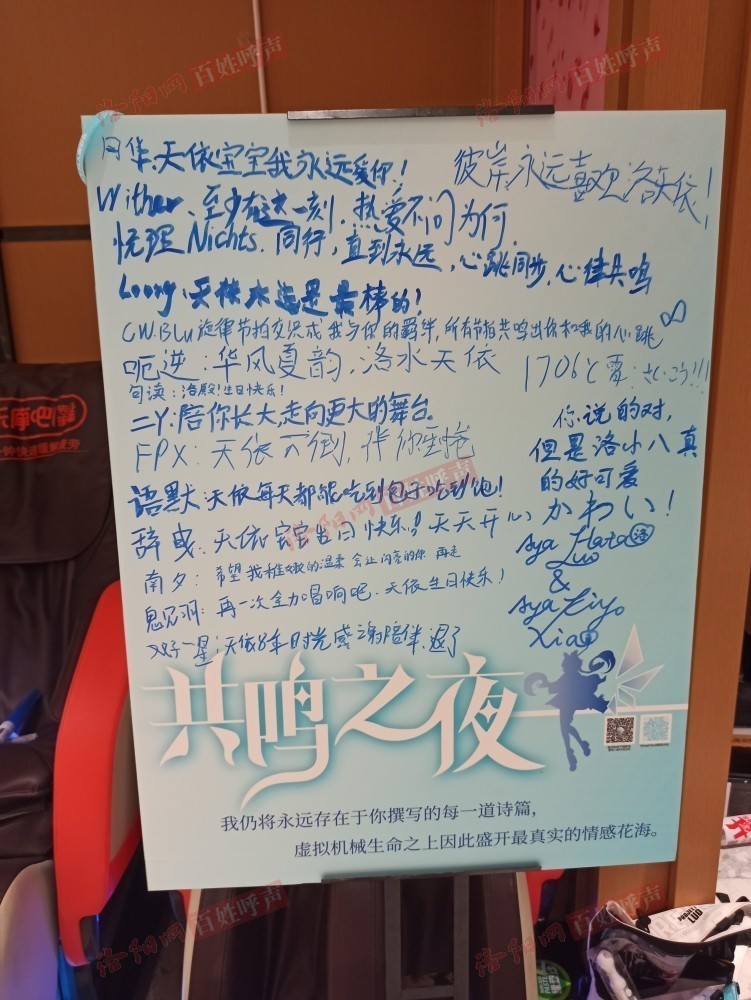 月华:天依宝宝我永远爱你！
彼岸,永远喜欢洛天依！
Wither、至少在这一刻，热爱不问为何
恍理Nichts.同行，直到永远，心跳同步，心律共鸣
Loong:天依永远是最棒的！
CW.BLU旋律节拍交织成我与你的羁绊，所有节拍共鸣出你和我的心跳
呃逆：华风夏韵，洛水天依
句读：洛殿！生日快乐！
二丫:陪你长大,走向更大的舞台。
FPX：天依不倒，
语默:天依每天都能吃到包子吃到饱！
辞彧：天依宝宝生日快乐！天天开心
南夕：希望我稚嫩的温柔 会让闪亮的你 再走
再一次全力唱响吧．天依生日快乐！
天依8年时光感谢陪伴，
1706と
你说的对，
但是洛小八真
的好可爱
かわい！
Aya Hato 洛
Luo
&
Aya Ziyo
Xia
共鸣之夜
我仍将永远存在于你撰写的每一道诗篇，
虚拟机械生命之上因此盛开最真实的情感花海。
洛阳网 百姓呼声
洛阳网 百姓呼声
洛阳网 百姓呼声
洛阳网 百姓呼声